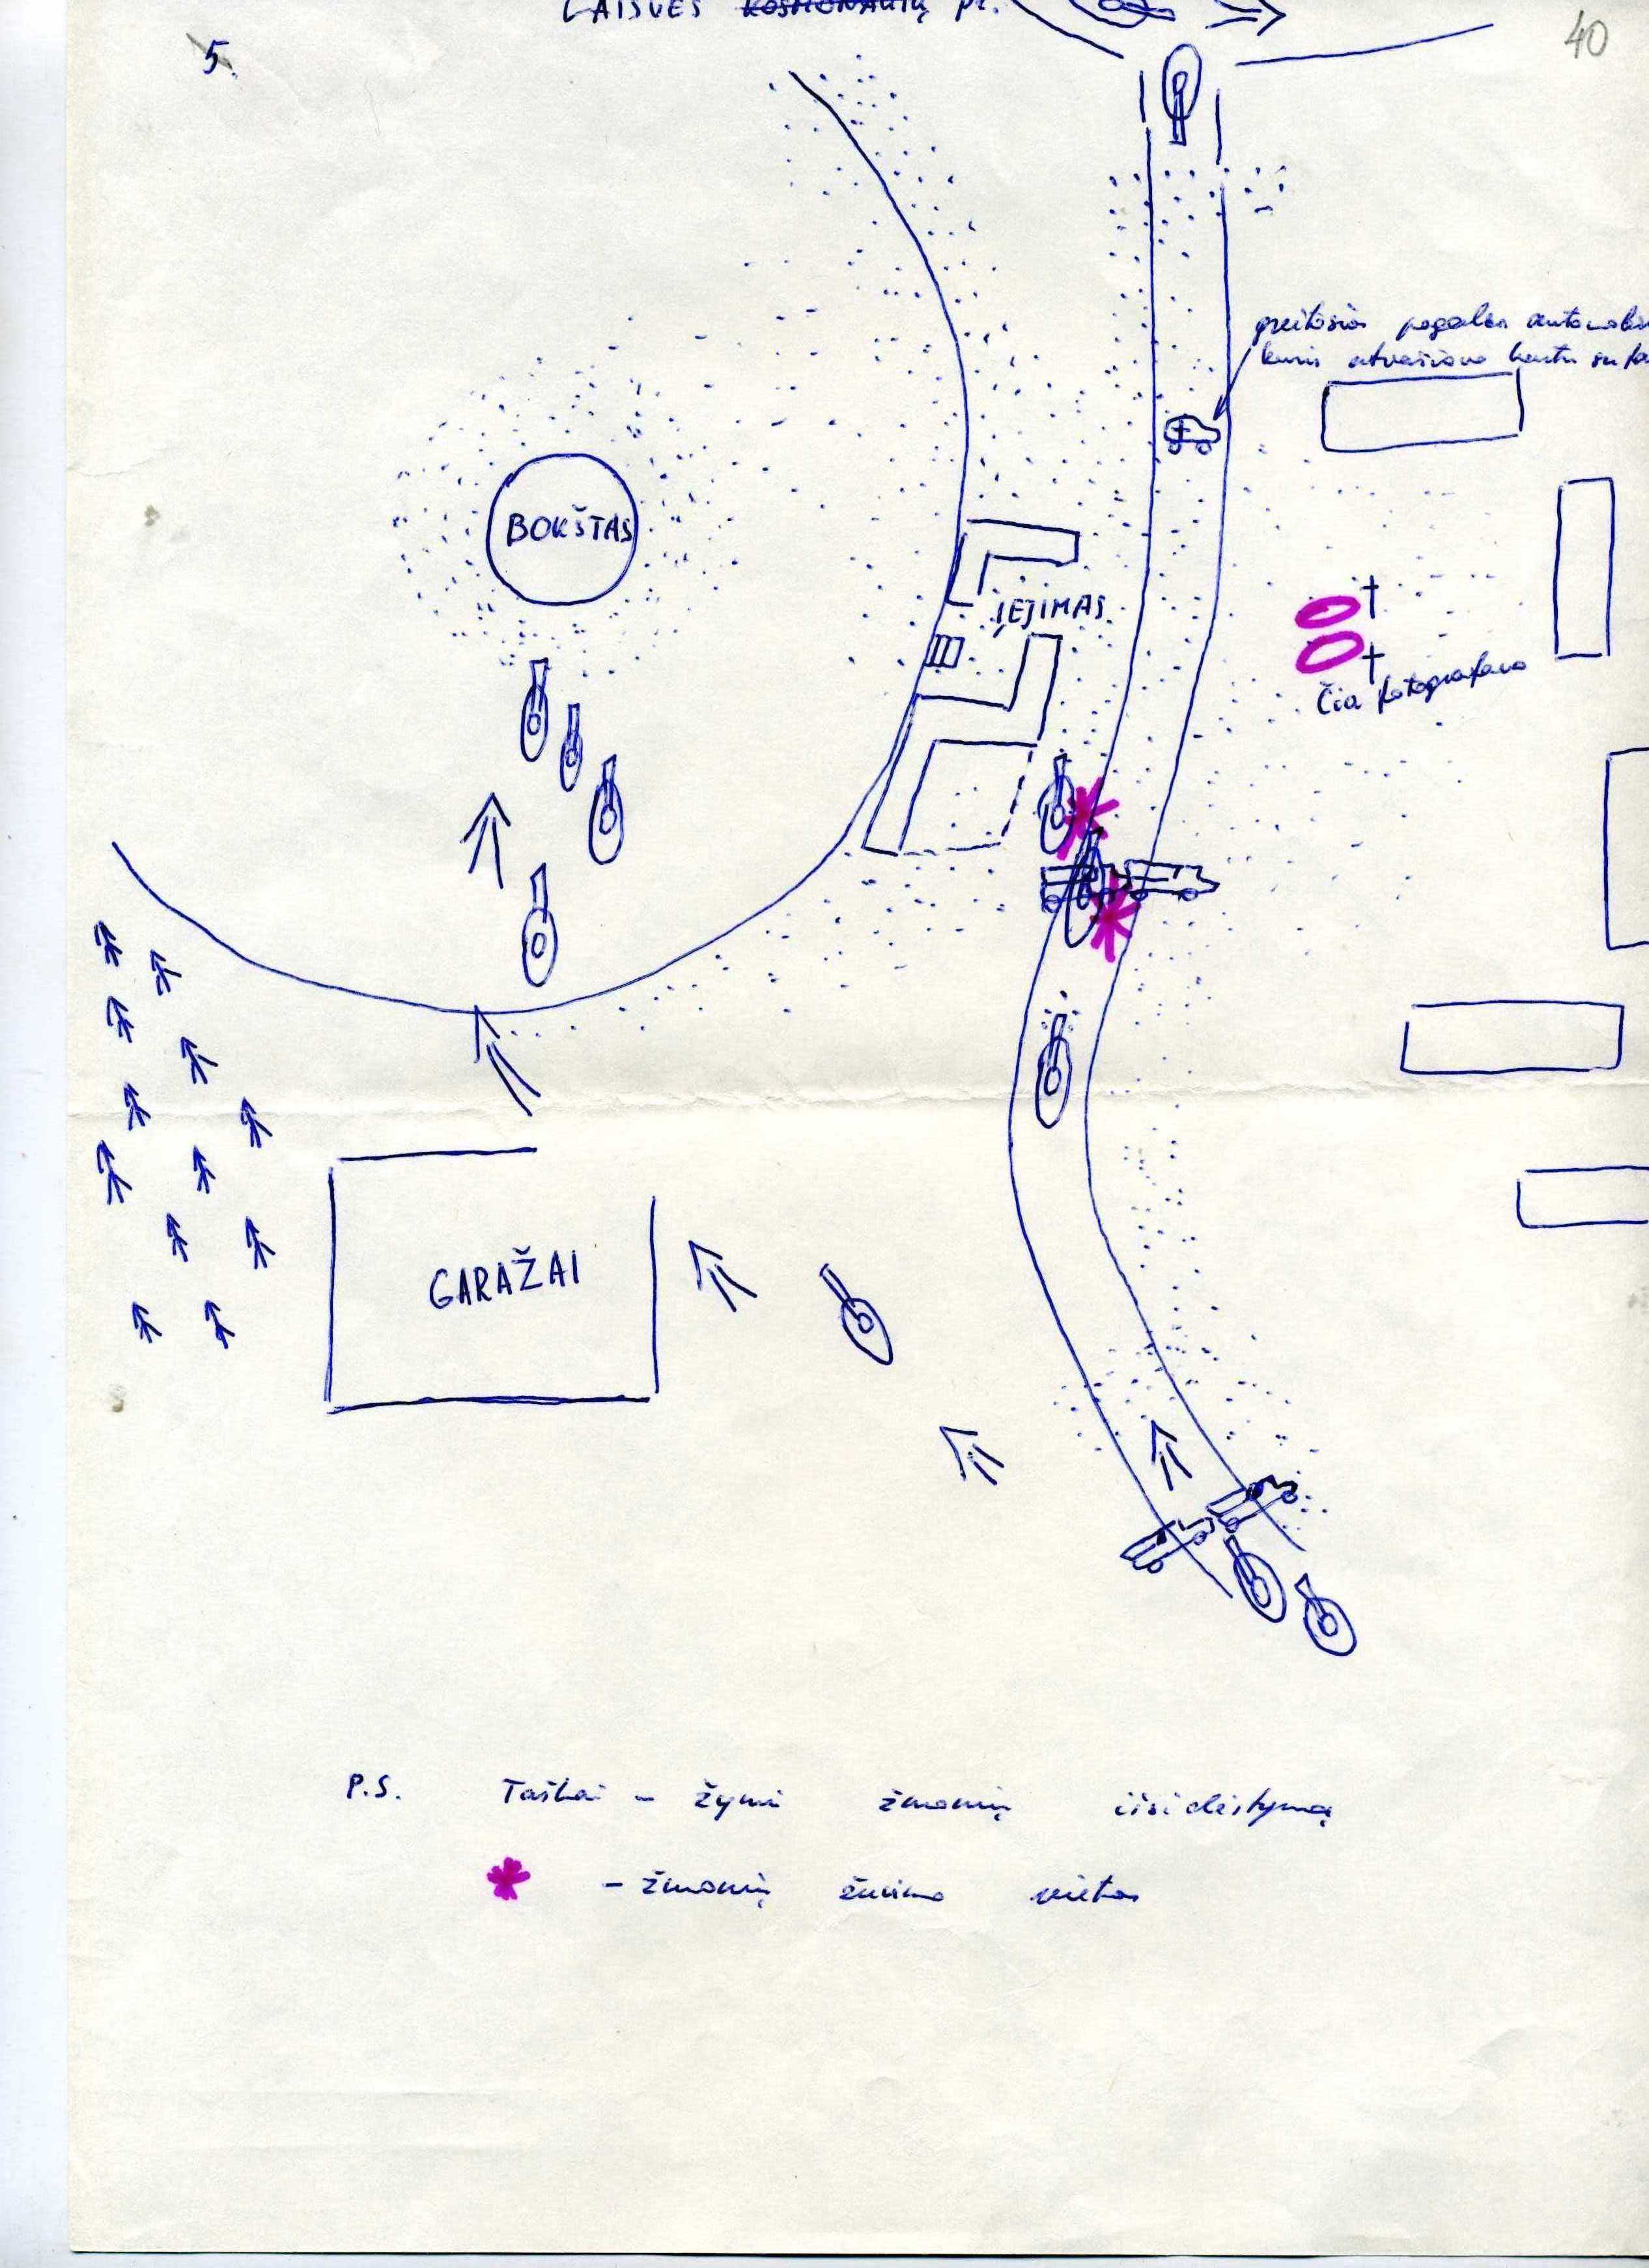 LAISVĖS KOSMONAUTŲ pr.
5.
40
greitosios pagalbos automobilis
kuris atvažiavo kartu su
BOKŠTAS
ĮĖJIMAS
†
†
Čia fotografavo
GARAŽAI
P.S. Taškai - žymi žmonių išsidėstymą
- žmonių žuvimo vietos